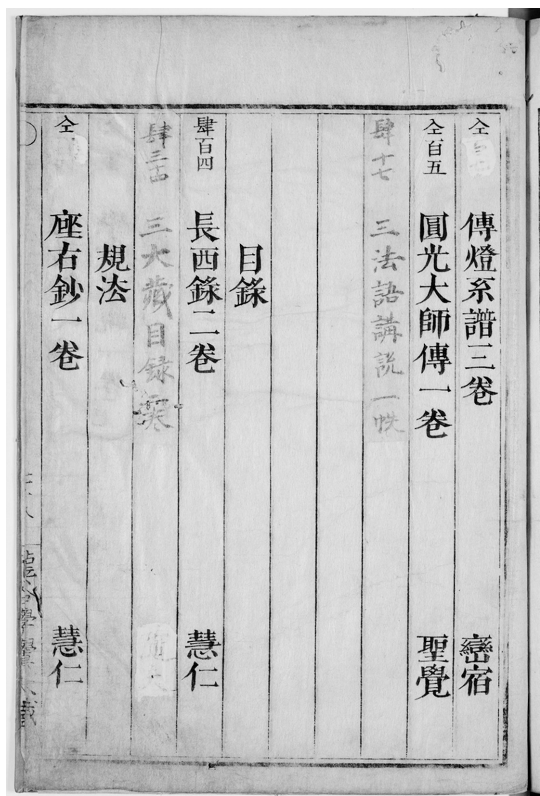 仝 傳燈系譜三卷 巒宿
仝百五 圓光大師傳一卷 聖覺
肆十七 三法語講説一帙
目錄
肆百四 長西錄二卷 慧仁
肆三十四 三大藏目録
規法
仝 座右鈔一卷 慧仁